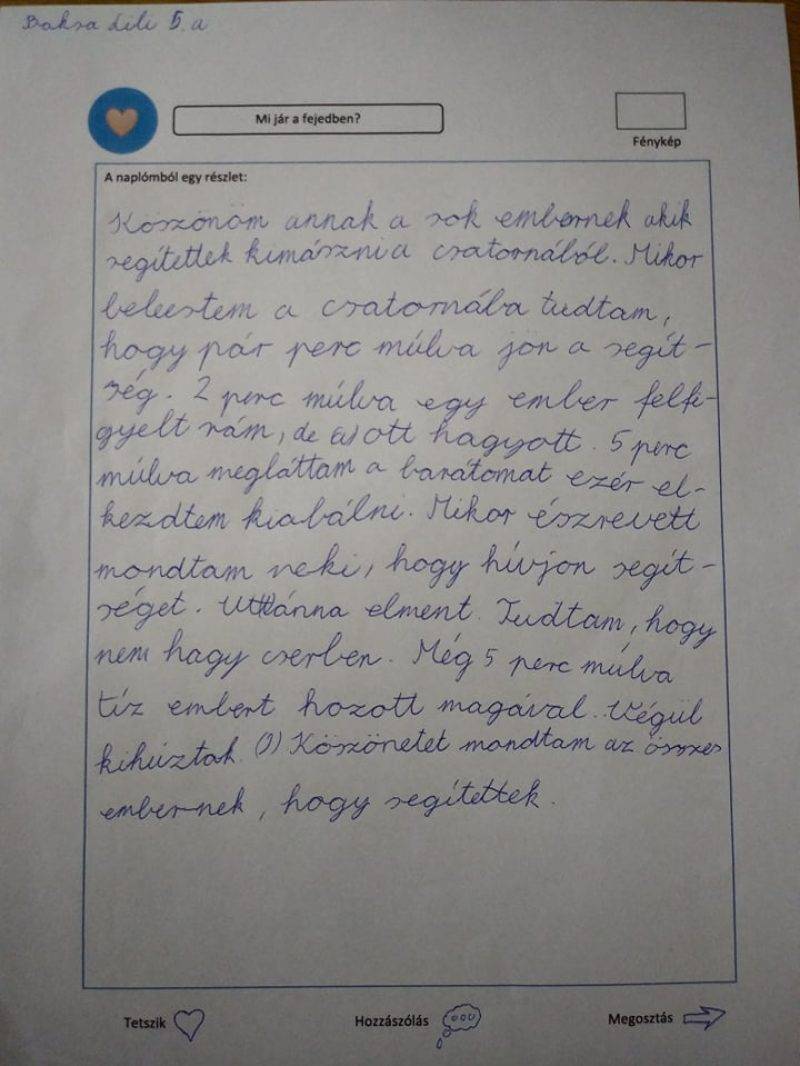 Baksa Lili 5. a
Mi jár a fejedben?
Fénykép
A naplómból egy részlet:
Köszönöm annak a sok embernek akik
segítettek kimászni a csatornából. Mikor
beleestem a csatornába tudtam,
hogy pár perc múlva jön a segít-
ség. 2 perc múlva egy ember felfi-
gyelt rám, de ott hagyott. 5 perc
múlva megláttam a barátomat ezér el-
kezdtem kiabálni. Mikor észrevett
mondtam neki, hogy hívjon segít-
séget. Utánna elment. Tudtam, hogy
nem hagy cserben. Még 5 perc múlva
tíz embert hozott magával. Végül
kihúztak. Köszönetet mondtam az összes
embernek, hogy segítettek.
Tetszik
Hozzászólás
Megosztás